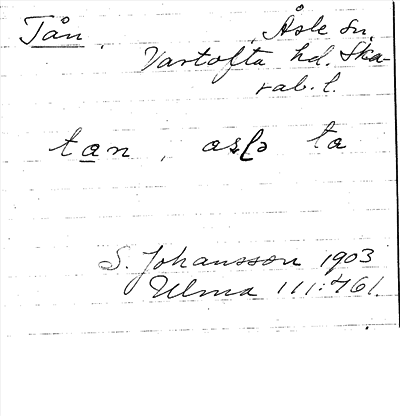 Tån. Åsle sn.
Vartofta hd. Ska-
rab. l.
tan, aslə ta
S. Johansson 1903
Ulma 111:461.